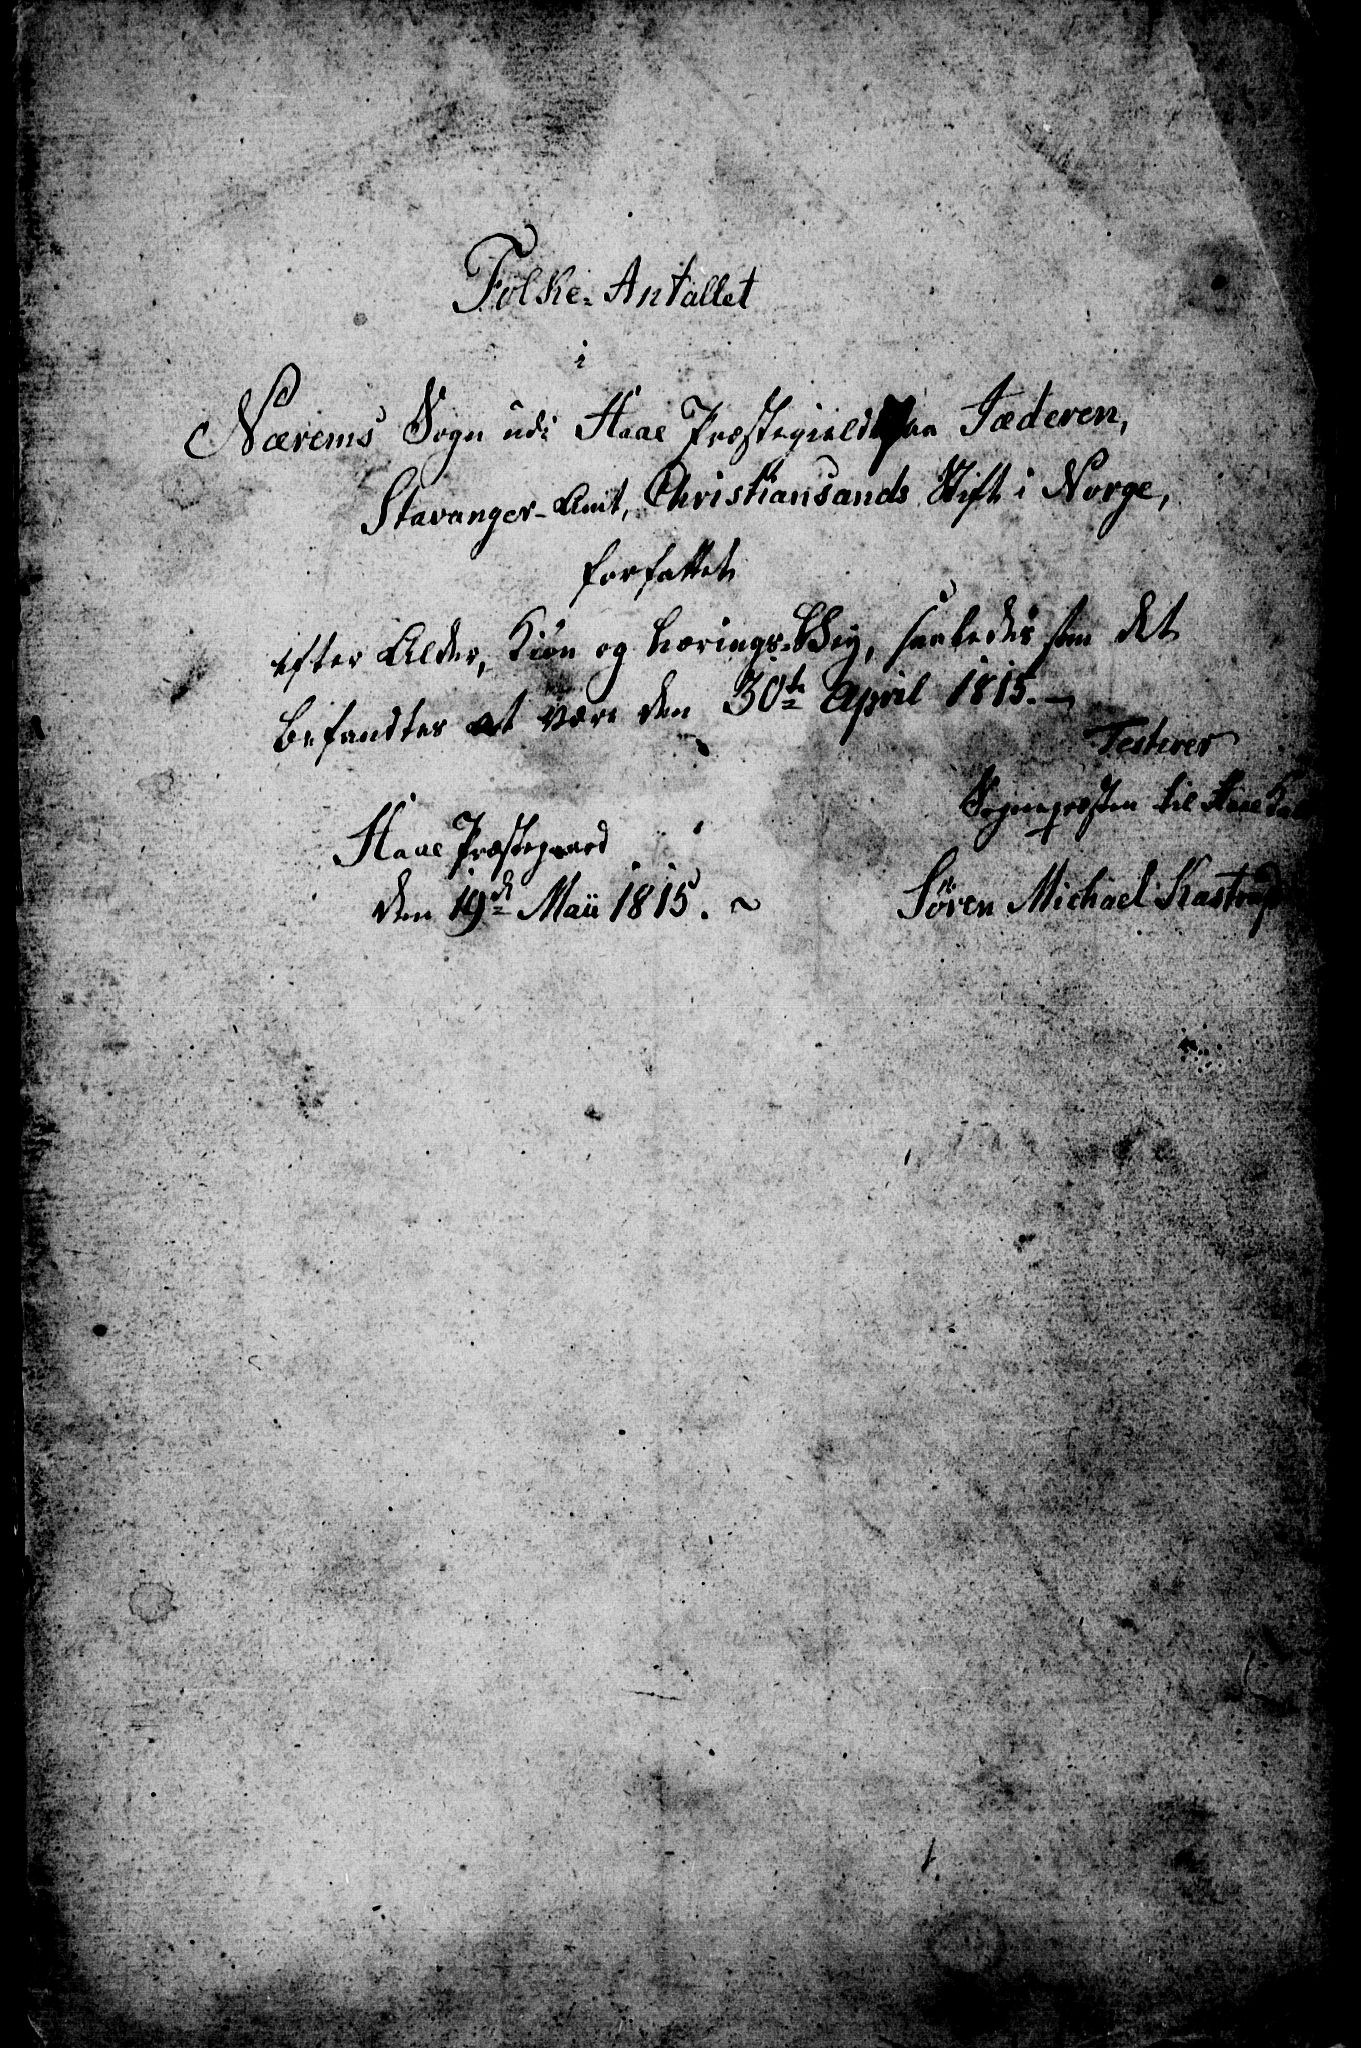 Folke-Antallet
i
Nærems Sogn udi Haae Præstegield paa Jæderen,
Stavanger-Amt, Christiansands Stift i Norge,
forfattet
efter Alder, Kiøn og Nærings-Vey, saaledes som det
befandtes at være den 30te April 1815. —
Testerer
Sognepræsten til Haae
Haae Præstegaard
den 19de Maii 1815. ~
Søren Michael Kastrup